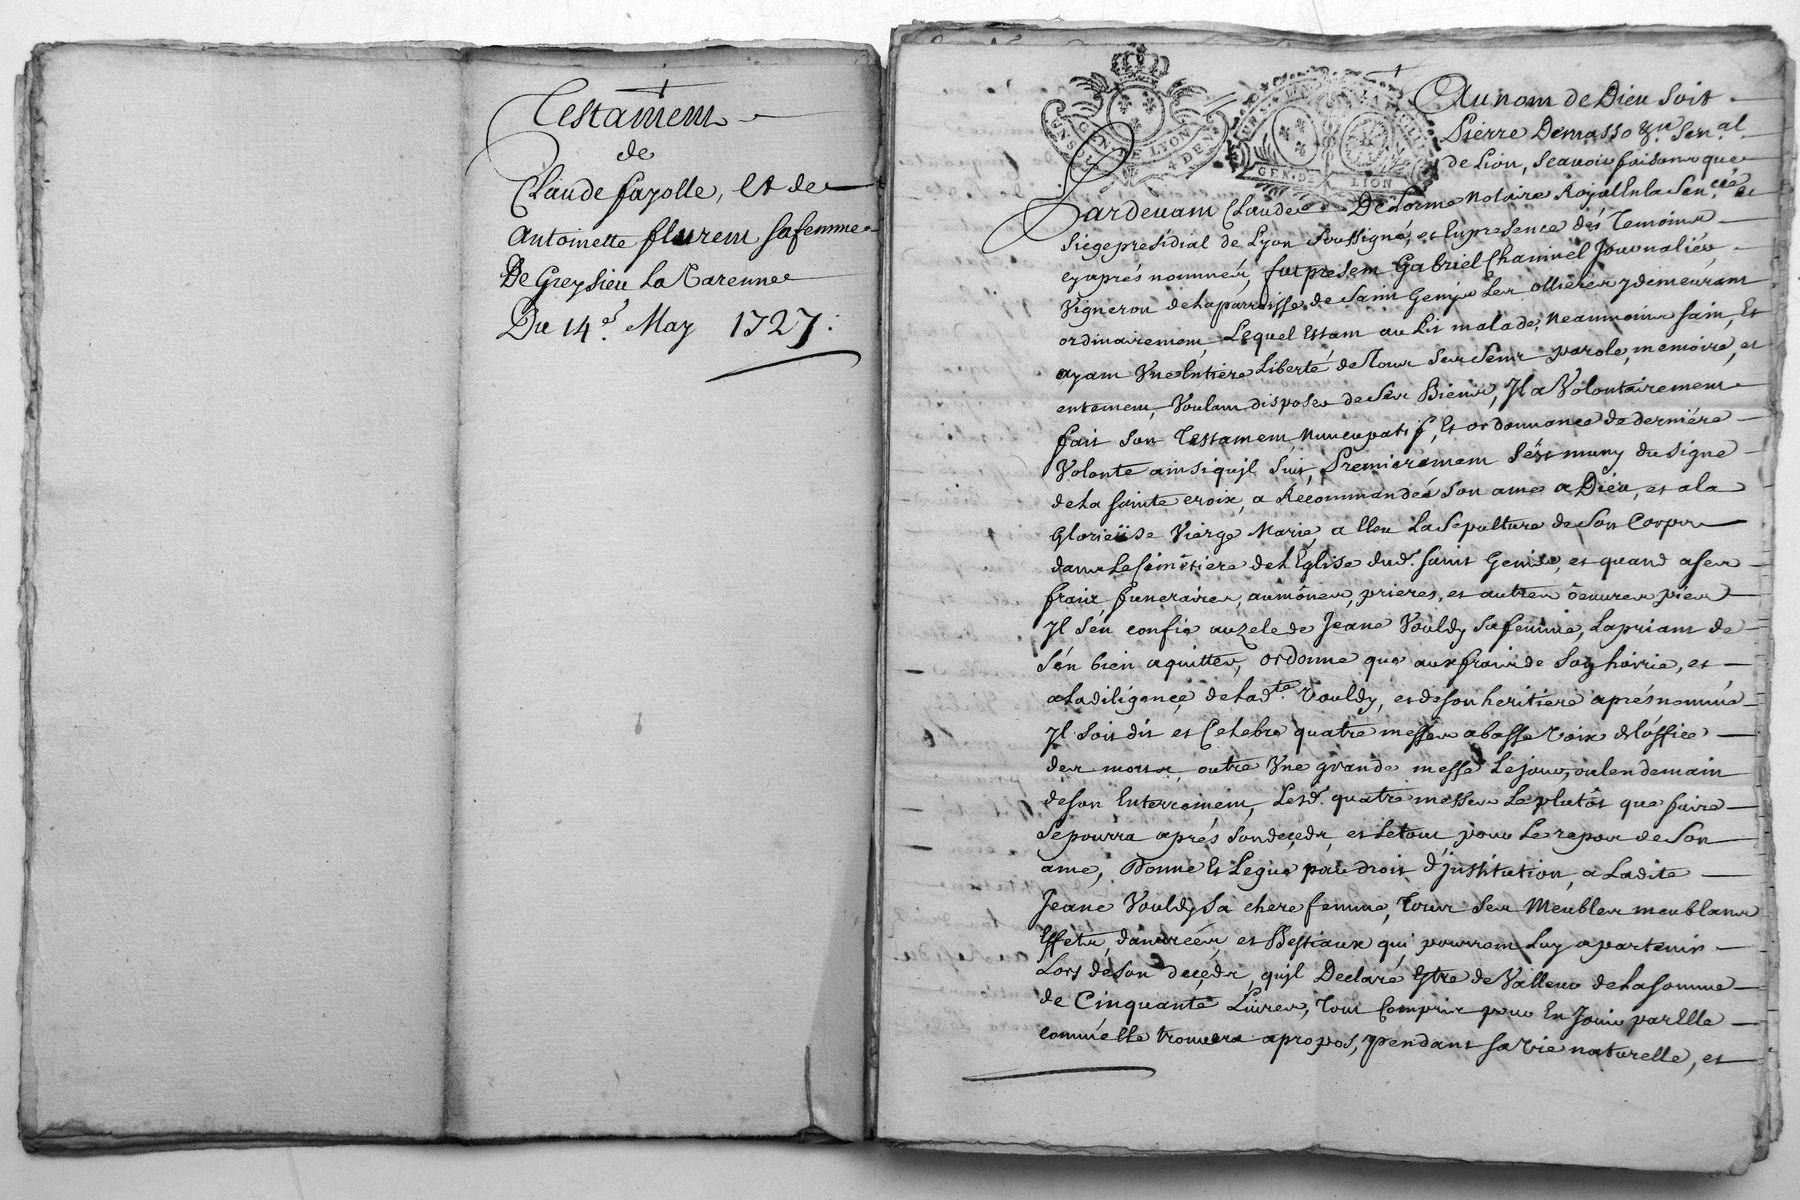 Testament
de
Claude fayolle, Et de
Antoinette flurent safemme
De Greysieu La Varenne
Du 14.e May 1727.
GEN. DE LYON
GEN. DE LION
Au nom de Dieu Soit
Pierre Demasso
de Lion, Scavoir faisons que
Pardevant Claude Delorme Notaire Royal En la Sen.cée et
Siege presidial de Lyon Soussigné, et En presence des Temoins
cy aprés nommés, fut present Gabriel Channel Journalier
Vigneron de La parroisse de Saint Genis Les ollieres y demeurant
ordinairement, Lequel Estant au Lit malade, Neanmoins sain, Et
ayant Une Entiere Liberté de Tous Ses Sens parole, memoire, et
entement, Voulant disposer de Ses Biens, Il a Volontairement
fait Son Testament Nuncupatif, Et ordonnance de derniére
Volonte ainsi quil Suit, Premierement S'est muny du Signe
de La Sainte croix, a Recommandé Son ame a Dieu, et a la
Glorieüse Vierge Marie, a Eleu La Sepulture de Son Corps
dans Le Simétiere de L'Eglise dud. Saint Genis, et quand a Ses
fraix funeraires, aumônes, prieres, et autres oeuvres pies
Il S'en confie au zele de Jeane Vouldy Sa femme, La priant de
S'en bien aquitter, ordonne que aux frais de Son hoirie, et
a La diligence de Lad.te Vouldy, et de Son heritiere aprés nommée
Il Soit dit et Celebré quatre messes a basse Voix de l'office
des morts, outre Une grande messe Le jour, ou Lendemain
de Son Enterrement, Lesd. quatre messes Le plutôt que faire
Se pourra aprés Son decedz, et Le tout pour Le repos de Son
ame, Donne Et Legue par droit d'jnstitution, a Ladite
Jeane Vouldy Sa chere femme, Tous Ses Meubles meublans
Effets, danrées, et Bestiaux qui pourront Luy apartenir
Lors de Son decedz, qu'jl Declare Estre de Valleur de La Somme
de Cinquante Livres, Tout Compris pour En Jouir par Elle
comme Elle trouvera apropos, pendant Sa Vie naturelle, et